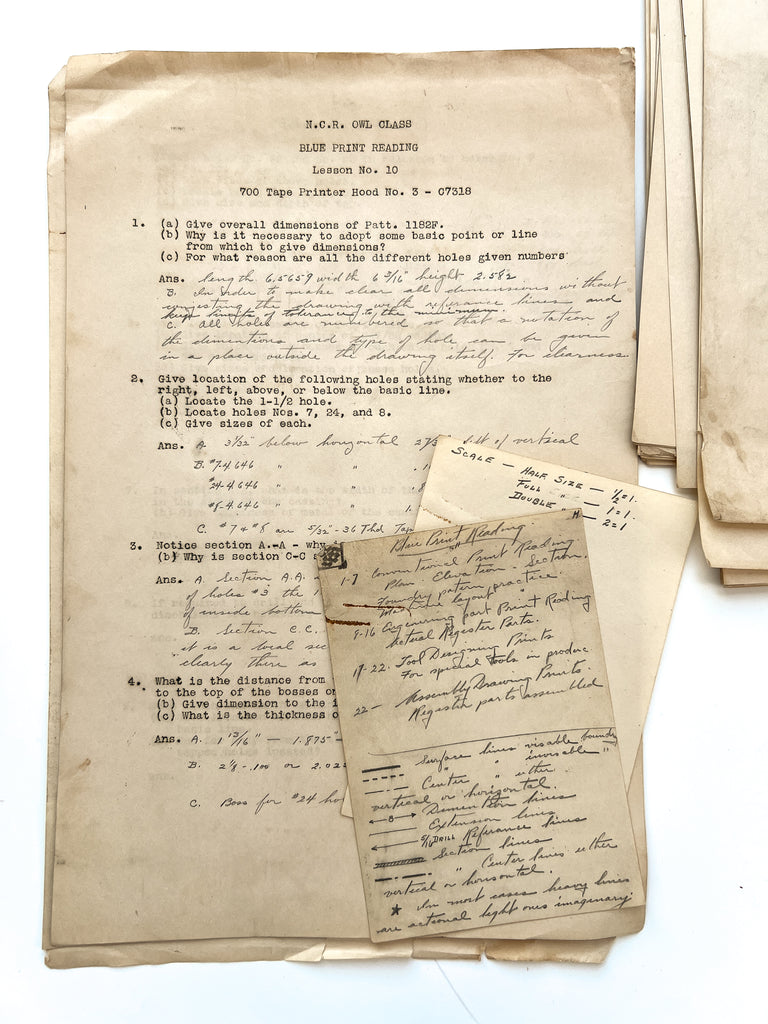 N.C.R. OWL CLASS
BLUE PRINT READING
Lesson No. 10
700 Tape Printer Hood No. 3 - C7318
1. (a) Give overall dimensions of Patt. 1182F.
(b) Why is it necessary to adopt some basic point or line
from which to give dimensions?
(c) For what reason are all the different holes given numbers
Ans. length 6.5659 width 6 3/16" height 2.582
B. In order to make clear all dimensions without
congesting the drawing with referance lines and
keep limits of tolerance to the minimum.
C. All holes are numbered so that a notation of
the dimentions and type of hole can be given
in a place outside the drawing itself. For clearness
2. Give location of the following holes stating whether to the
right, left, above, or below the basic line.
(a) Locate the 1-1/2 hole.
(b) Locate holes Nos. 7, 24, and 8.
(c) Give sizes of each.
Ans. A. 3/32" below horizontal left of vertical
B. #7-4.646 " "
#24-4.646 " "
#8-4.646 " "
C. #7 & #8 are 5/32"-36 Thd Tap
3. Notice section A.-A - why is
(b) Why is section C-C
Ans. A. Section A.A.
of holes #3 the
of inside bottom
B. Section C.C.
it is a local sec
clearly there as
4. What is the distance from
to the top of the bosses on
(b) Give dimension to the
(c) What is the thickness o
Ans. A. 1 13/16" — 1.875"
B. 2 1/8 - .100 or 2.025
C. Boss for #24 ho
SCALE — HALF SIZE — 1/2=1
FULL " — 1=1
DOUBLE " — 2=1
H
Blue Print Reading
1-7 Conventional Print Reading
Plan - Elevation - Section.
Foundry patern practice.
Machine layout "
8-16 Enginering part Print Reading
Actual Register Parts.
17-22. Tool Designing Prints
For special tools in produc
22 — Assembly Drawing Prints.
Register parts assembled
Surface lines visable boundry
" " invisable "
Center " either
vertical or horizontal.
8 Dimention lines
Extension lines
5/16 DRILL Referance lines
Section lines
" Center lines either
vertical or horisontal.
In most cases heavy lines
are actional light ones imaginary.